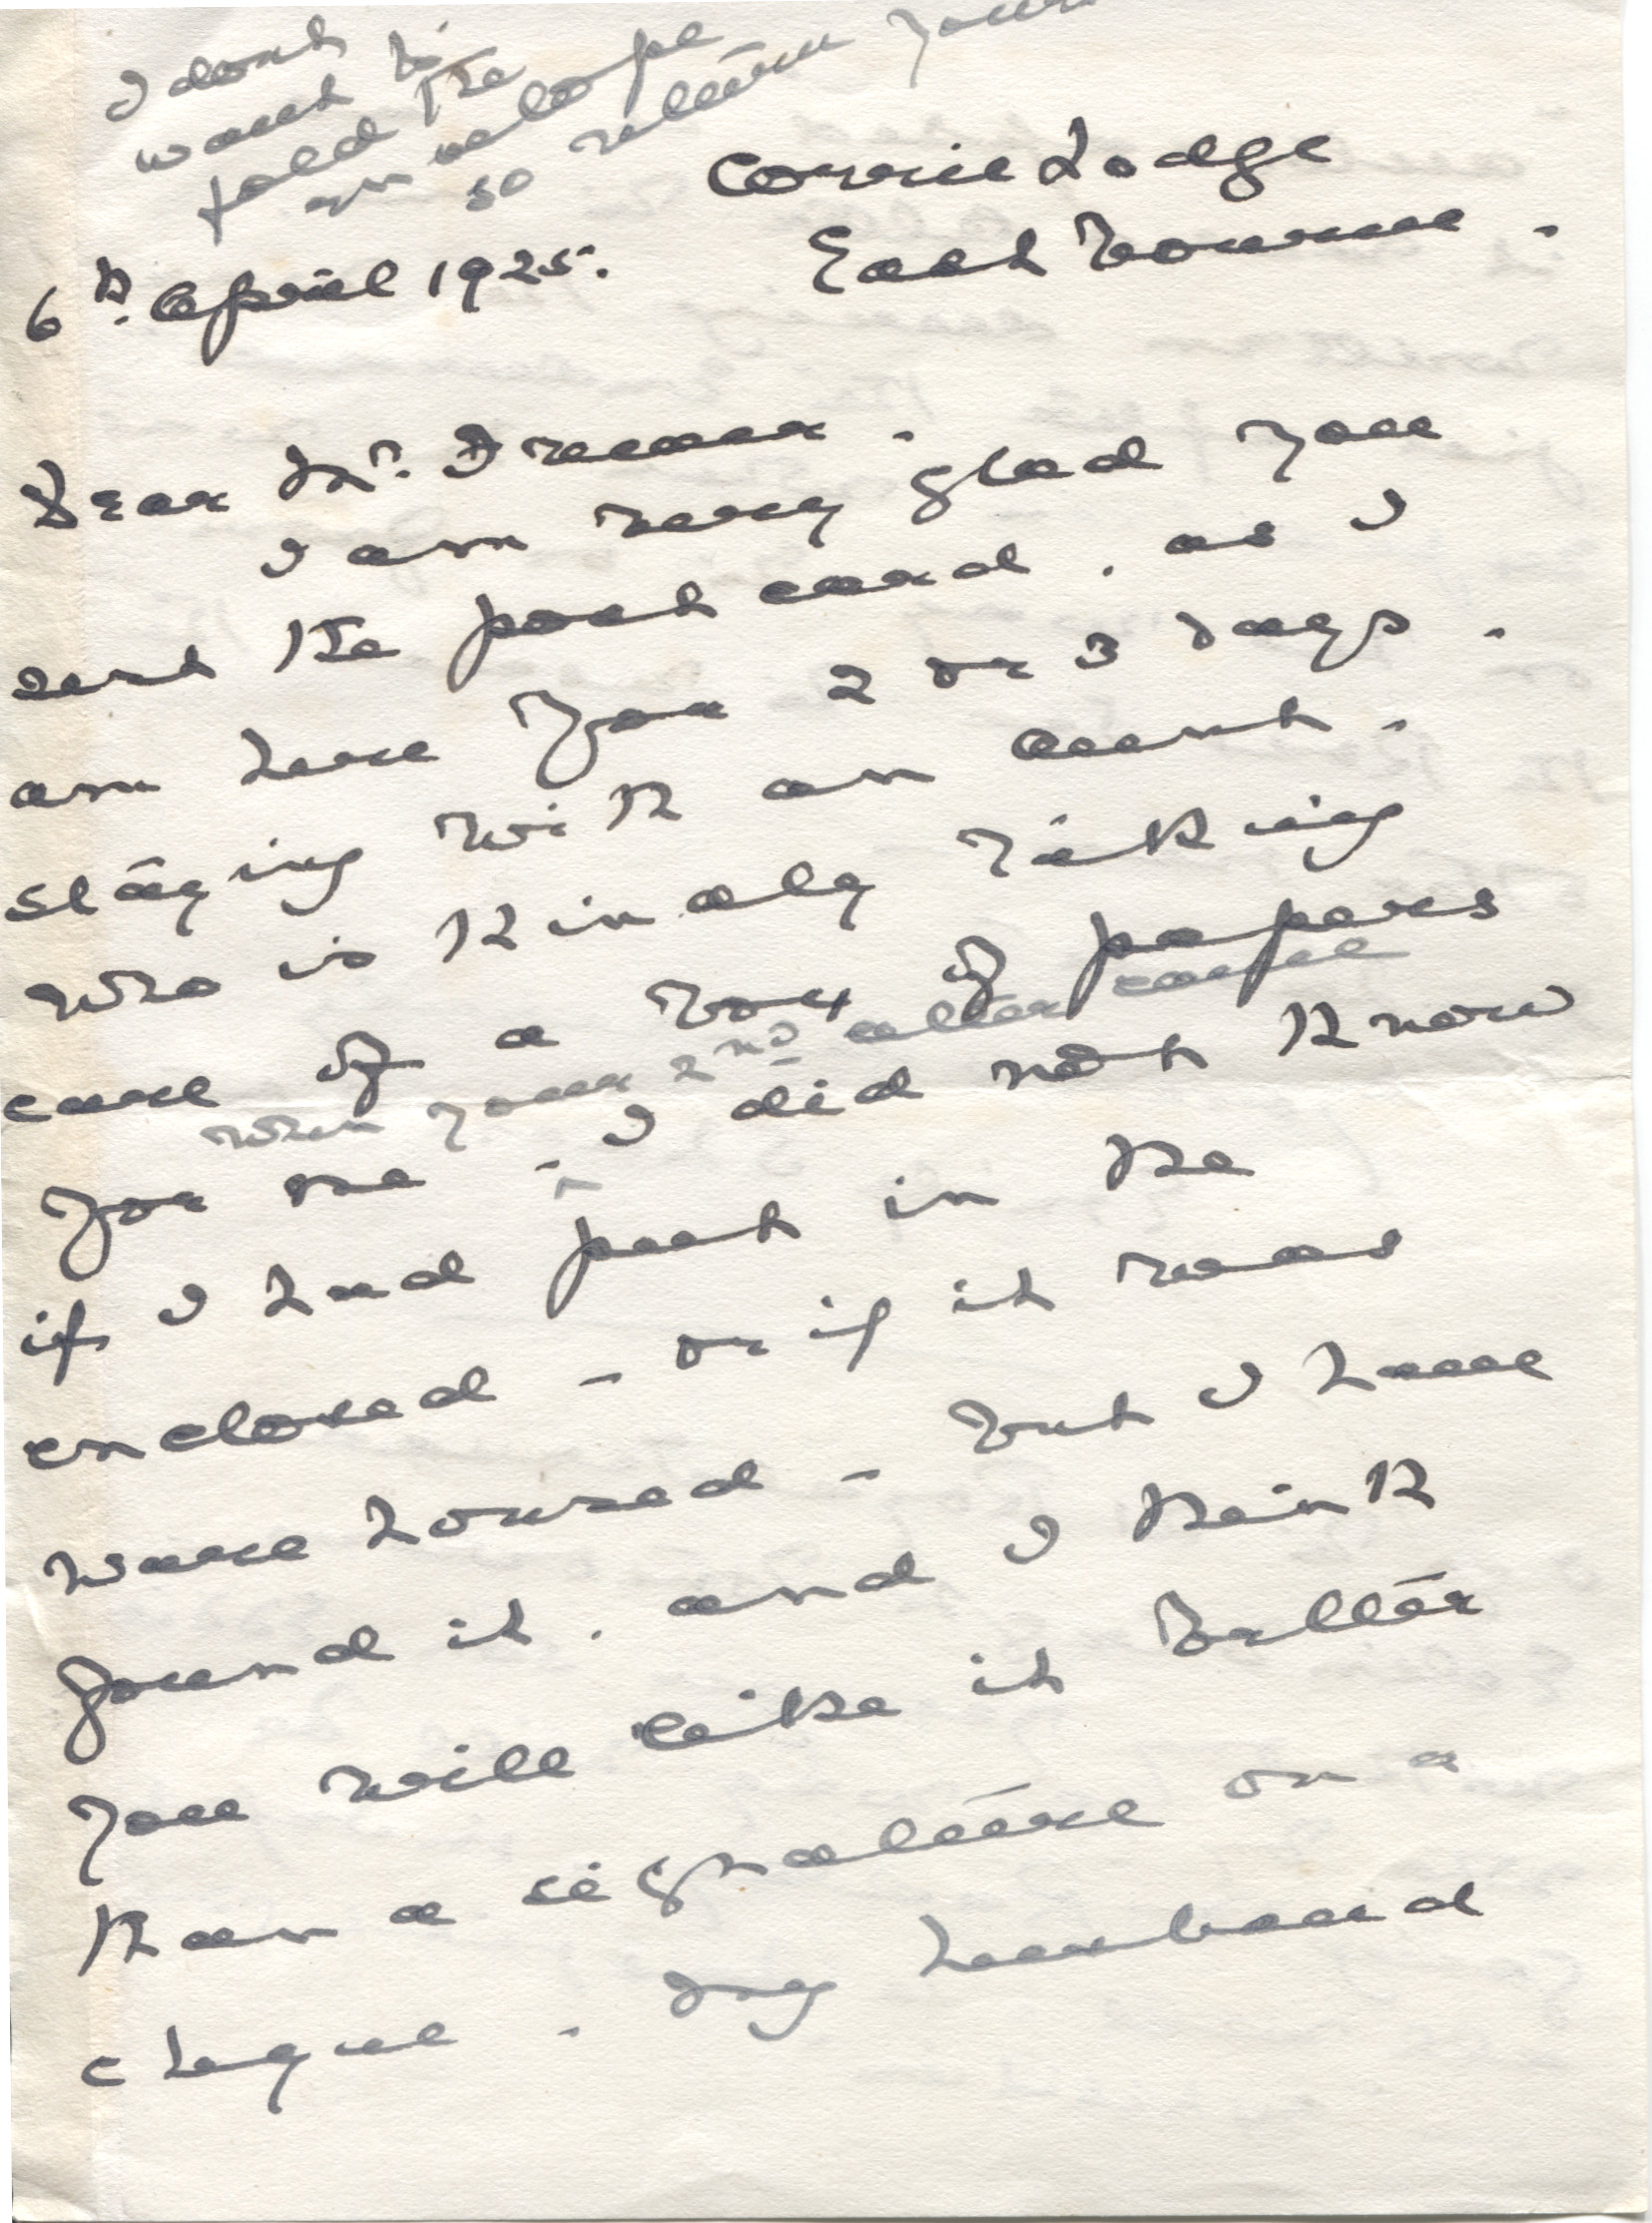 I dont
want to
fold the
envelope
so return your
Corrie Lodge
East bourne.
6th. April 1925.
Dear Mr.
I am very glad you
sent the post card. as I
am here for 2 or 3 days.
staying with an aunt.
who is kindly taking
care of a box of papers
when your 2nd letter came
for me - I did not know
if I had put in the
enclosed - or if it was
ware housed - but I have
found it. and I think
you will like it better
than a signature on a
cheque. My husband